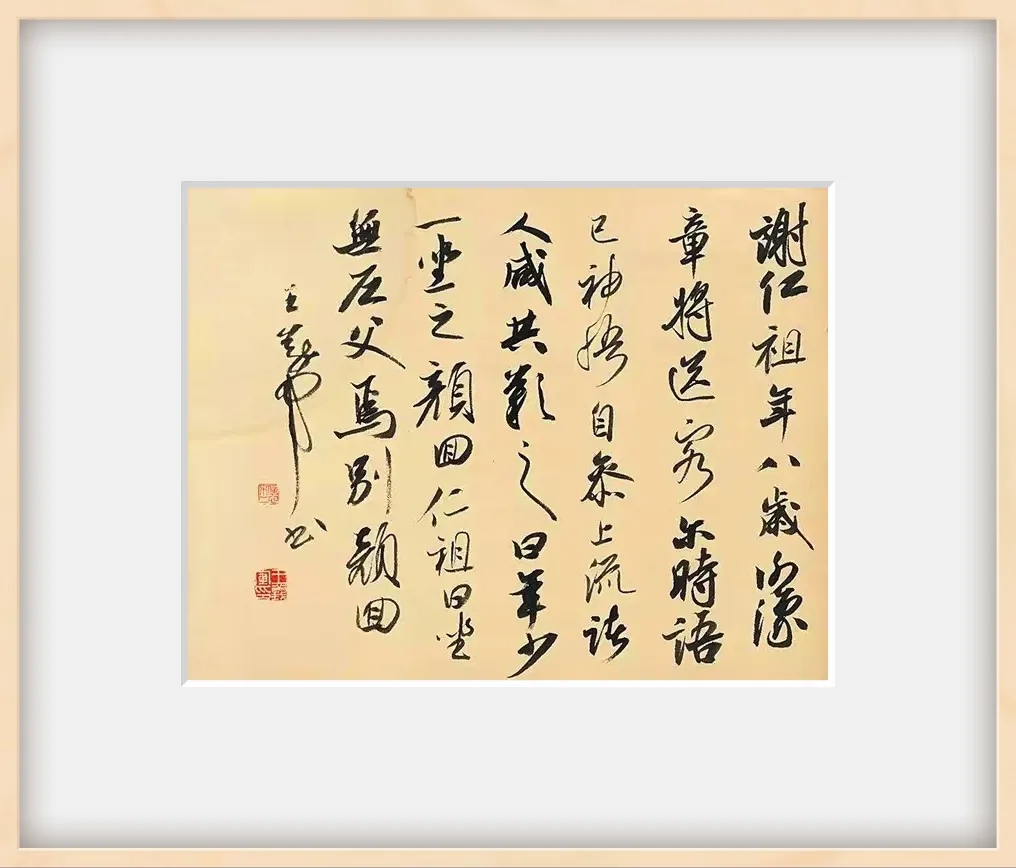 謝仁祖年八歲謝豫
章將送客尔時語
已神悟自叅上流諸
人咸共歎之曰年少
一坐之顔回仁祖曰坐
無尼父焉別顔回
王義军书